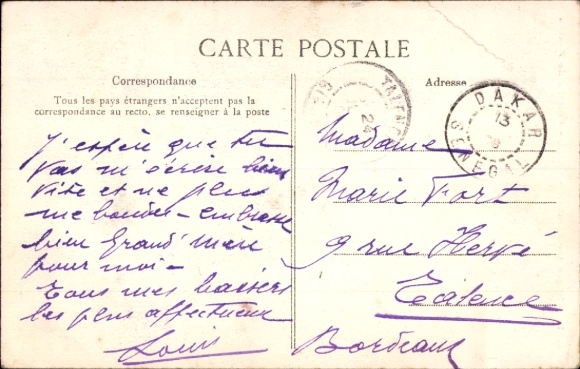 CARTE POSTALE
Correspondance
Tous les pays étrangers n'acceptent pas la
correspondance au recto, se renseigner à la poste
J'espère que tu
vas m'écrire bien
vite et ne plus
me bouder – embrasse
bien Grand'Mère
pour moi –
Tous mes baisers
les plus affectueux
Louis
Adresse
TALENCE
24
DAKAR
13
SÉNÉGAL
Madame
Marie Fort
9 rue Hervé
Talence
Bordeaux